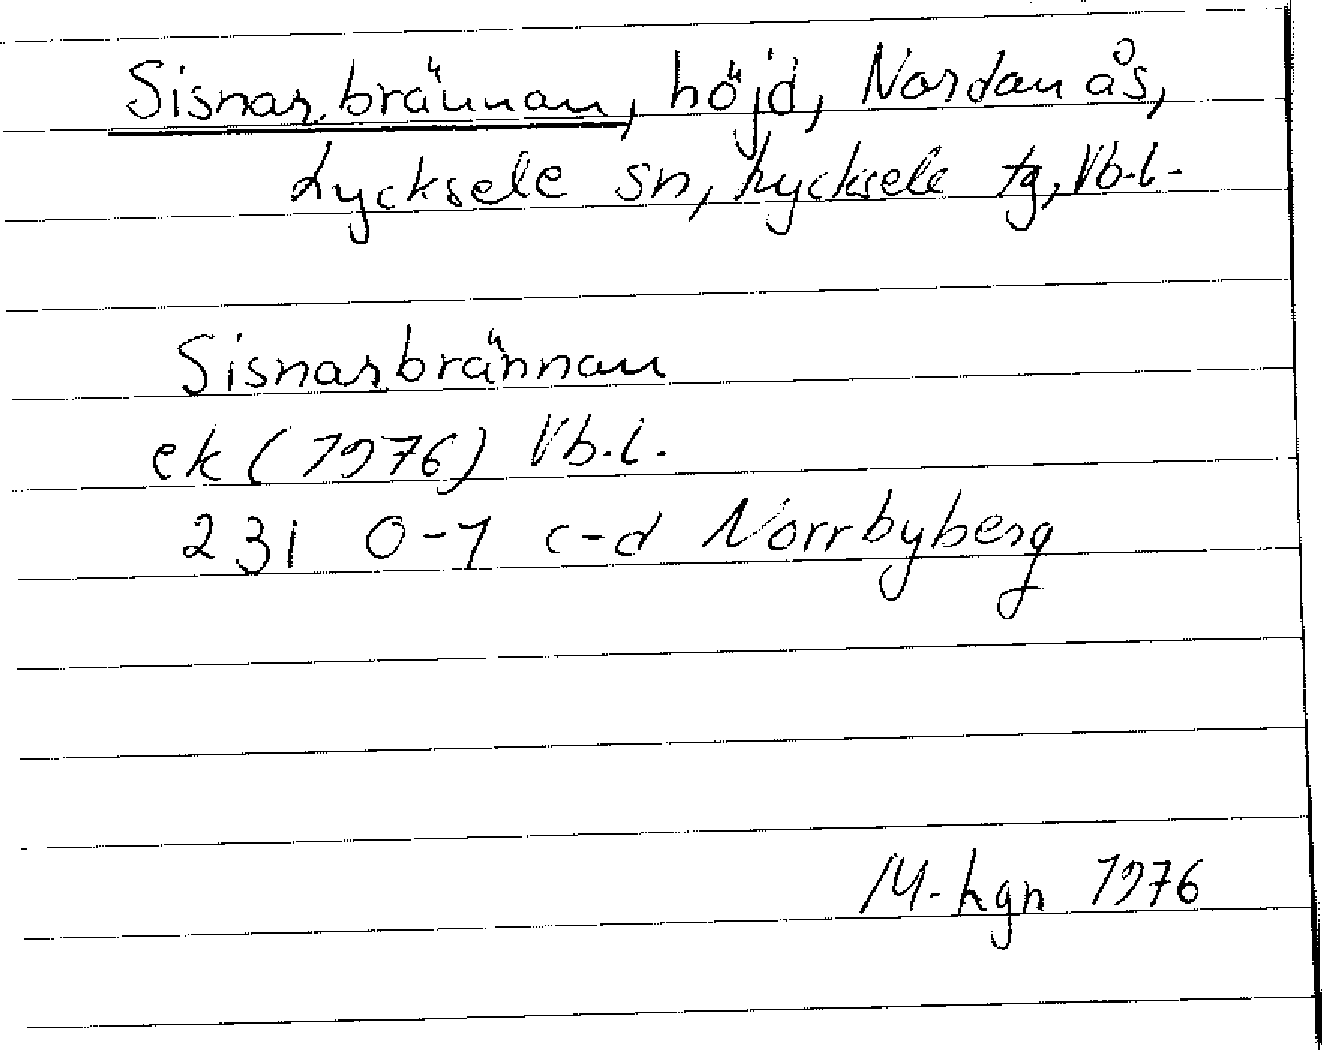 Sisnarbrännan, höjd, Nordanås,
Lycksele sn, Lycksele tg, Vb.l.
Sisnarbrännan
ek (1976) Vb.l.
23i 0-1 c-d Norrbyberg
M-hgn 1976